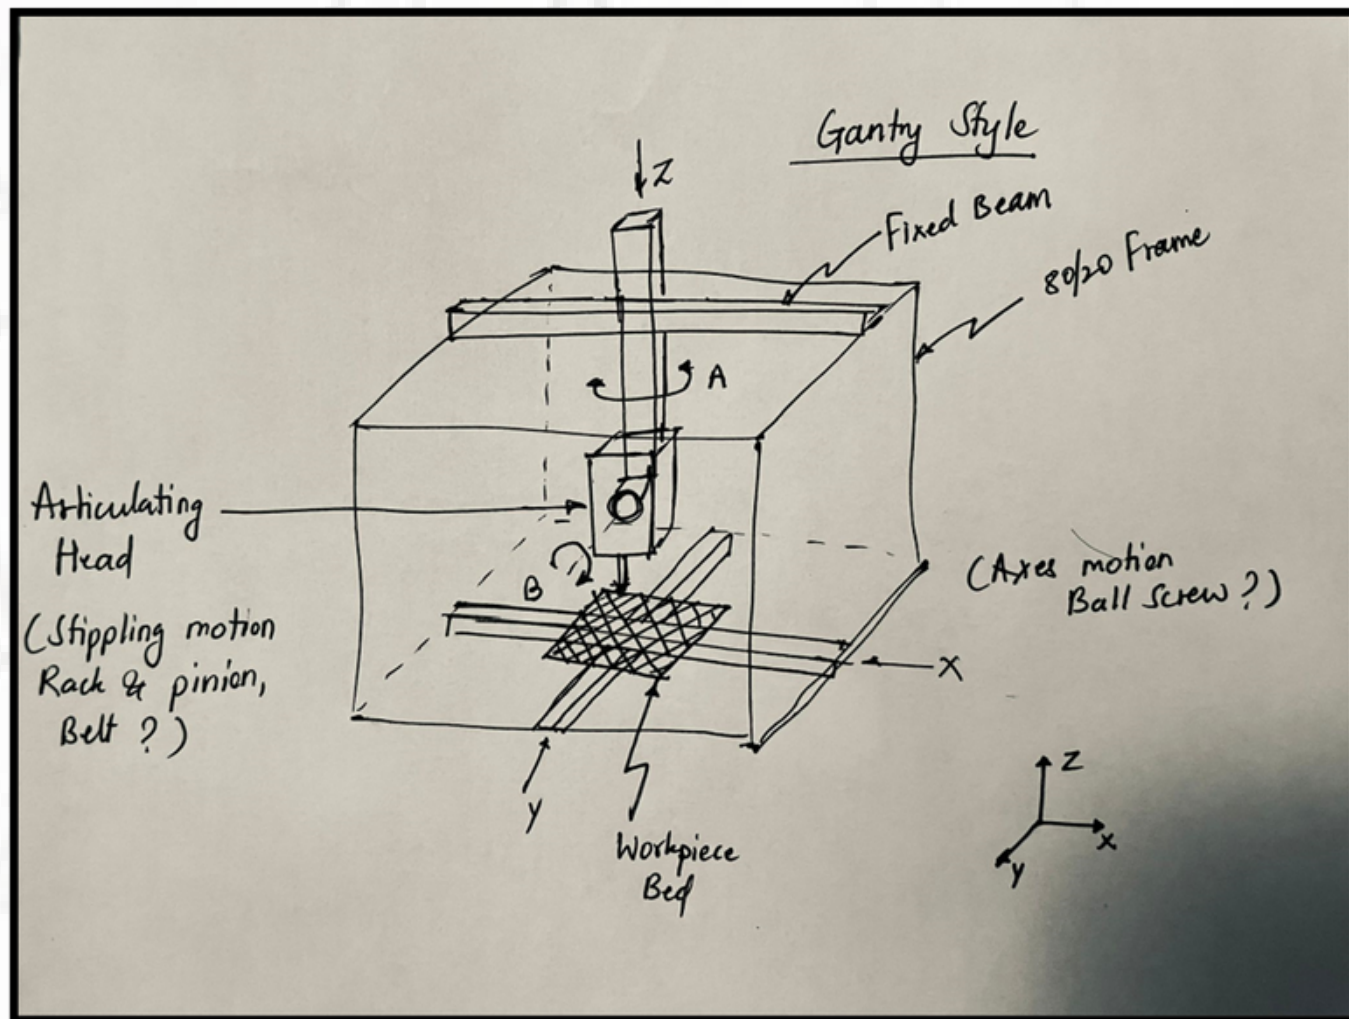 Gantry Style
Z
Fixed Beam
80/20 Frame
A
Articulating
Head
(Stippling motion
Rack & pinion,
Belt ?)
B
(Axes motion
Ball Screw ?)
X
Y
Workpiece
Bed
Z
X
Y